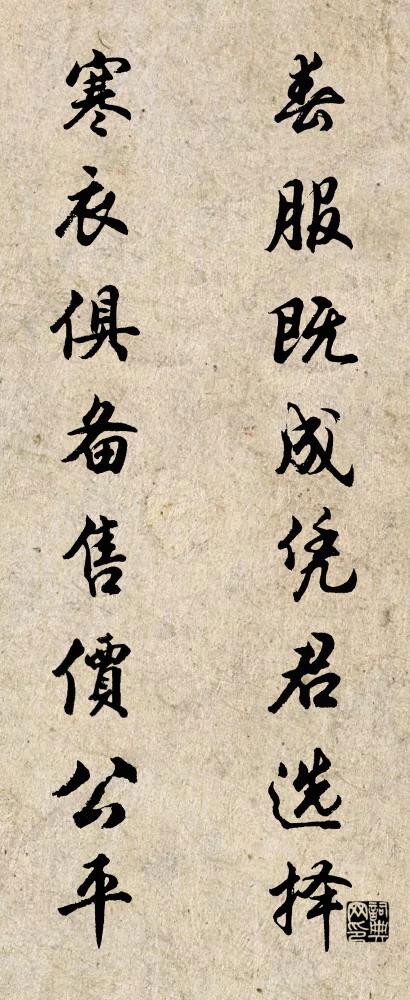 春服既成凭君选择
寒衣俱备售價公平
詞典
网印